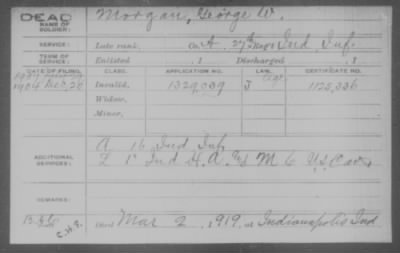 DEAD
NAME OF SOLDIER: Morgan, George W.
SERVICE: Late rank, Co. A, 27 Reg't Ind. Inf.
TERM OF SERVICE: Enlisted , 1 Discharged , 1
DATE OF FILING. CLASS. APPLICATION NO. LAW. CERTIFICATE NO.
1904 Invalid, 1329,039 J Age 1125,336
Widow,
Minor,
ADDITIONAL SERVICES:
A 16 Ind Inf
L 1" Ind H. A. M 6 U.S. Cav
REMARKS:
C.H.S. Died Mar 2, 1919, at Indianapolis Ind